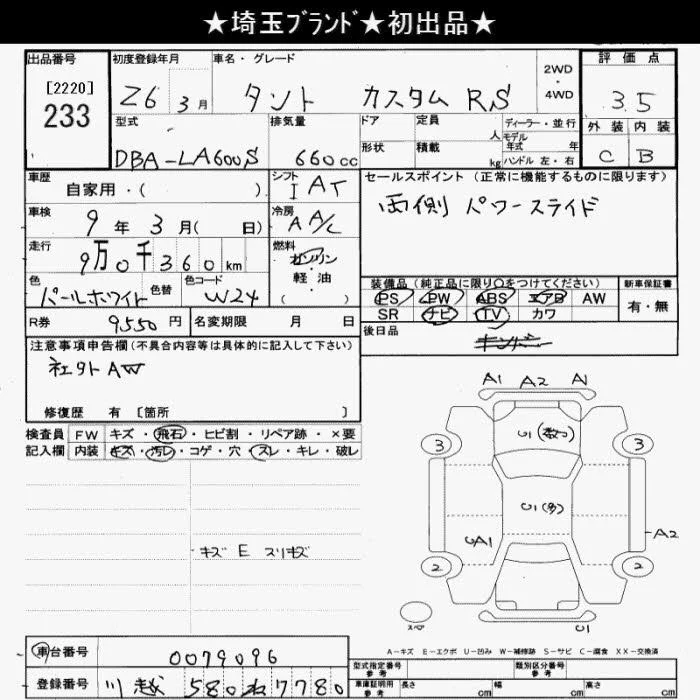 ★埼玉ﾌﾞﾗﾝﾄﾞ★初出品★
出品番号 初度登録年月 車名・グレード 2WD・4WD 評価点
[2220]
233
26 3月 タント カスタム RS 3.5
型式 排気量 ドア 定員 人 ディーラー・並行 外装 内装
モデル年式 年
DBA-LA600S 660cc 形状 積載 kg ハンドル 左・右 C B
車歴 シフト セールスポイント (正常に機能するものに限ります)
自家用・( ) I AT
両側 パワースライド
車検 冷房
9年 3月( 日) A A/C
走行 燃料
9万0千360km ガソリン・軽油・( )
色 色替 色コード 装備品(純正品に限り〇をつけてください) 新車保証書
パールホワイト W24 PS PW ABS エアB AW 有・無
SR ナビ TV カワ
R券 9550円 名変期限 月 日 後日品
注意事項申告欄(不具合内容等は具体的に記入して下さい)
社外AW
修復歴 有 [箇所 ]
検査員 FW キズ・飛石・ヒビ割・リペア跡・×要
記入欄 内装 キズ・汚レ・コゲ・穴・スレ・キレ・破レ
キズ E スリキズ
A1 A2 A1
U1(数つ)
3 3
U1(多)
UA1 A2
2 2
スペア U1
A-キズ E-エクボ U-凹み W-補修跡 S-サビ C-腐食 XX-交換済
車台番号 0079096
型式指定番号 参考 類別区分番号 参考
登録番号 川越 580 ね 7780
車庫証明用 参考 長さ cm 幅 cm 高さ cm